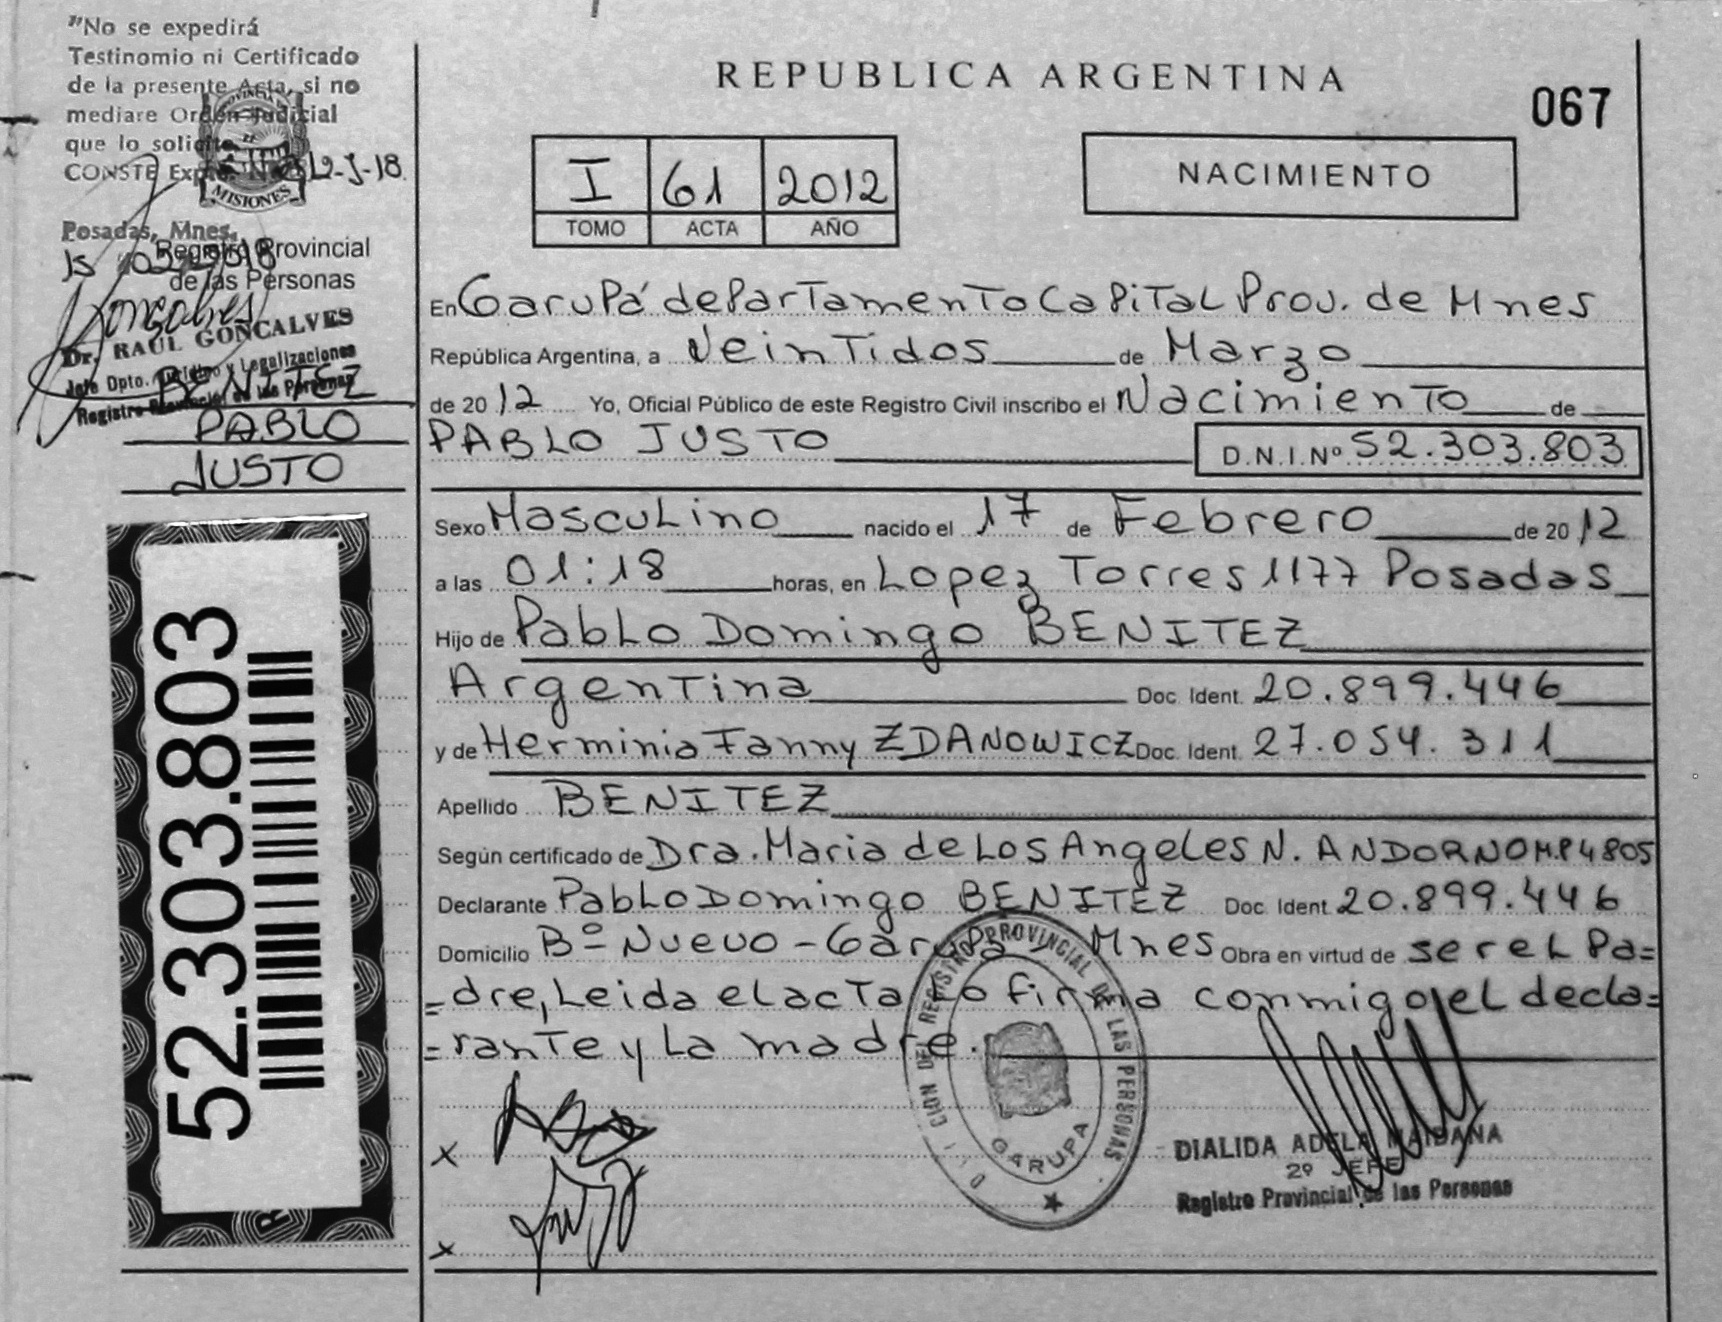 "No se expedirá
Testinomio ni Certificado
de la presente Acta, si no
mediare Orden Judicial
que lo solicite
CONSTE Expte. N
PROVINCIA DE
MISIONES
Posadas, Mnes.
Registro Provincial
de las Personas
Goncalves
Dr. RAUL GONCALVES
Jefe Dpto. Jurídico y Legalizaciones
Registro Provincial de las Personas
BENITEZ
PABLO
JUSTO
52.303.803
REPUBLICA ARGENTINA
067
I 61 2012
TOMO ACTA AÑO
NACIMIENTO
En Garupá departamento Capital Prov. de Mnes
República Argentina, a Veintidos de Marzo
de 2012 Yo, Oficial Público de este Registro Civil inscribo el Nacimiento de
PABLO JUSTO D.N.I.Nº 52.303.803
Sexo Masculino nacido el 17 de Febrero de 2012
a las 01:18 horas, en Lopez Torres 1177 Posadas
Hijo de Pablo Domingo BENITEZ
Argentina Doc. Ident. 20.899.446
y de Herminia Fanny ZDANOWICZ Doc. Ident. 27.054.311
Apellido BENITEZ
Según certificado de Dra. Maria de Los Angeles N. ANDORNO M.P 4805
Declarante Pablo Domingo BENITEZ Doc. Ident. 20.899.446
Domicilio Bº Nuevo - Garupá Mnes Obra en virtud de ser el Pa=
=dre, Leida el acta lo firma conmigo, el decla=
=rante y La madre.
DIRECCION DEL REGISTRO PROVINCIAL DE LAS PERSONAS
GARUPA
X
X
DIALIDA ADELA MAIDANA
2º JEFE
Registro Provincial de las Personas